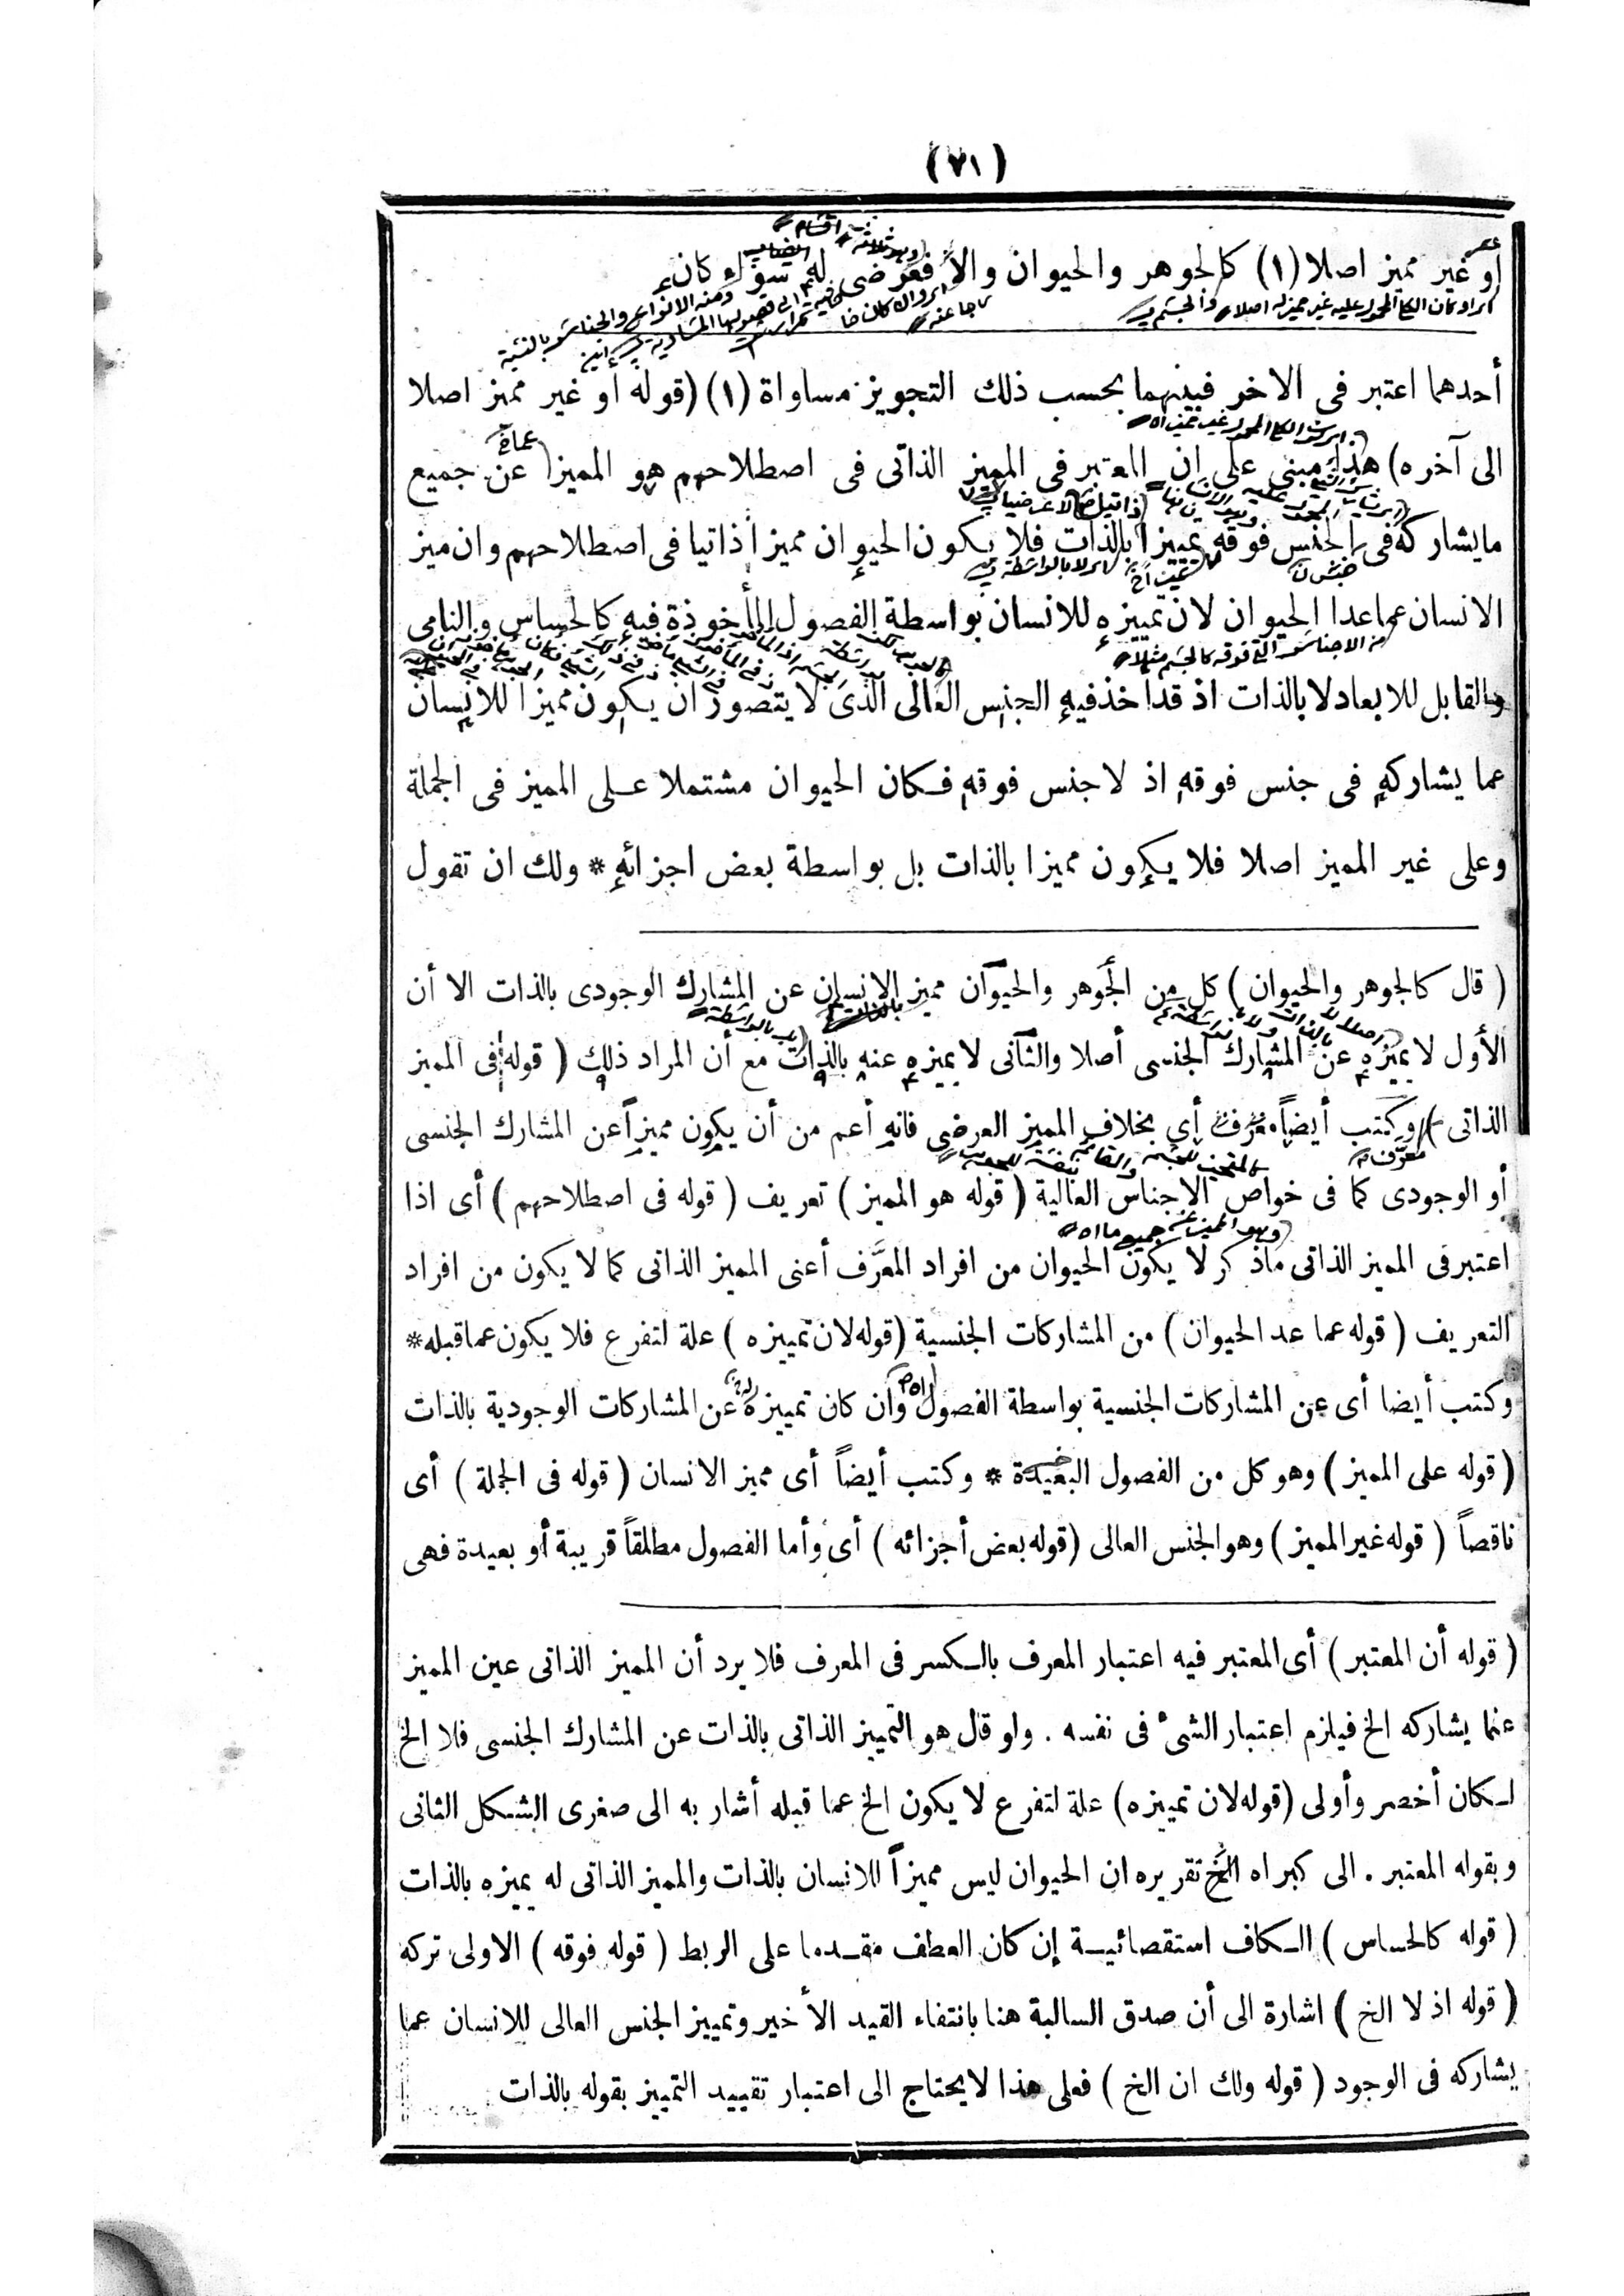 (٧١)
أو غير مميز اصلا (١) كالجوهر والحيوان والا فعرضى له سواء كان
أحدهما اعتبر فى الاخر فبينهما بحسب ذلك التجويز مساواة (١) (قوله او غير مميز اصلا
الى آخره) هذا مبنى على ان المعتبر فى المميز الذاتى فى اصطلاحهم هو المميز عن جميع
مايشاركه فى الجنس فوقه تمييزا بالذات فلا يكون الحيوان مميزا ذاتيا فى اصطلاحهم وان ميز
الانسان عما عدا الحيوان لان تمييزه للانسان بواسطة الفصول المأخوذة فيه كالحساس والنامى
والقابل للابعاد لا بالذات اذ قد اخذ فيه الجنس العالى الذى لا يتصور ان يكون مميزا للانسان
عما يشاركه فى جنس فوقه اذ لا جنس فوقه فكان الحيوان مشتملا على المميز فى الجملة
وعلى غير المميز اصلا فلا يكون مميزا بالذات بل بواسطة بعض اجزائه * ولك ان تقول
( قال كالجوهر والحيوان ) كل من الجوهر والحيوان مميز الانسان عن المشارك الوجودى بالذات الا أن
الأول لا يميزه عن المشارك الجنسى أصلا والثانى لا يميزه عنه بالذات مع أن المراد ذلك ( قوله فى المميز
الذاتى ) وكتب أيضاً معرف أى بخلاف المميز العرضى فانه أعم من أن يكون مميزاً عن المشارك الجنسى
أو الوجودى كما فى خواص الاجناس العالية ( قوله هو المميز ) تعريف ( قوله فى اصطلاحهم ) أى اذا
اعتبر فى المميز الذاتى ماذكر لا يكون الحيوان من افراد المعرَّف أعنى المميز الذاتى كما لا يكون من افراد
التعريف ( قوله عما عد الحيوان ) من المشاركات الجنسية (قوله لان تمييزه ) علة لتفرع فلا يكون عما قبله *
وكتب أيضا أى عن المشاركات الجنسية بواسطة الفصول وان كان تمييزه عن المشاركات الوجودية بالذات
( قوله على المميز ) وهو كل من الفصول البعيدة * وكتب أيضاً أى مميز الانسان ( قوله فى الجملة ) أى
ناقصاً ( قوله غير المميز ) وهو الجنس العالى (قوله بعض أجزائه ) أى وأما الفصول مطلقاً قريبة أو بعيدة فهى
( قوله أن المعتبر ) أى المعتبر فيه اعتبار المعرف بالكسر فى المعرف فلا يرد أن المميز الذاتى عين المميز
عنما يشاركه الخ فيلزم اعتبار الشىء فى نفسه . ولو قال هو التمييز الذاتى بالذات عن المشارك الجنسى فلا الخ
لكان أخصر وأولى (قوله لان تمييزه) علة لتفرع لا يكون الخ عما قبله أشار به الى صغرى الشكل الثانى
وبقوله المعتبر . الى كبراه الخ تقريره ان الحيوان ليس مميزاً للانسان بالذات والمميز الذاتى له يميزه بالذات
( قوله كالحساس ) الكاف استقصائية إن كان العطف مقدما على الربط ( قوله فوقه ) الاولى تركه
( قوله اذ لا الخ ) اشارة الى أن صدق السالبة هنا بانتفاء القيد الأخير وتمييز الجنس العالى للانسان عما
يشاركه فى الوجود ( قوله ولك ان الخ ) فعلى هذا لايحتاج الى اعتبار تقييد التمييز بقوله بالذات